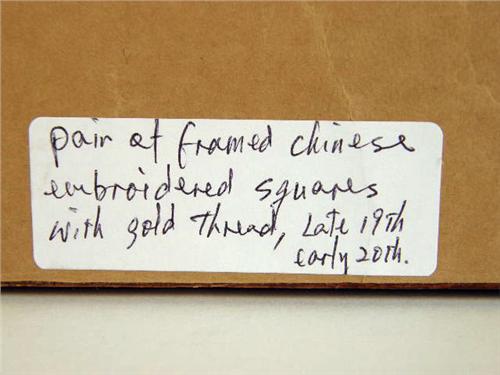 pair of framed chinese
embroidered squares
with gold Thread, Late 19Th
early 20th.